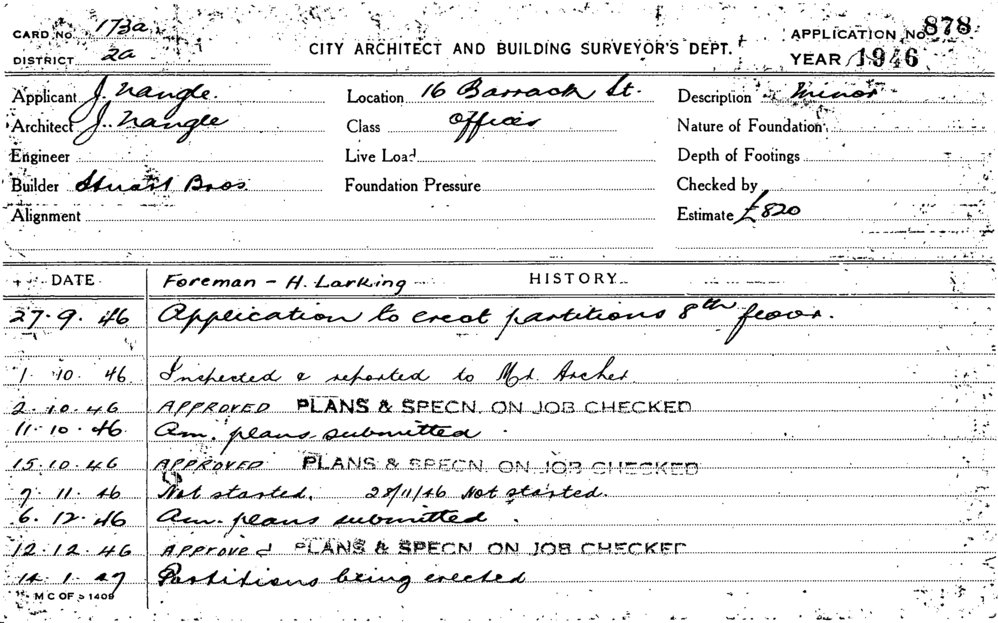 CARD No. 173a
APPLICATION No 878
DISTRICT 2a
CITY ARCHITECT AND BUILDING SURVEYOR'S DEPT.
YEAR 1946
Applicant J. Nangle.
Location 16 Barrack St.
Description Minor
Architect J. Nangle
Class Offices
Nature of Foundation
Engineer
Live Load
Depth of Footings
Builder Stuart Bros
Foundation Pressure
Checked by
Alignment
Estimate £820
DATE Foreman - H. Larking HISTORY
27.9.46 Application to erect partitions 8th floor.
1.10.46 Inspected & reported to Mr. Archer
2.10.46 APPROVED PLANS & SPECN. ON JOB CHECKED
11.10.46 Am. plans submitted
15.10.46 APPROVED PLANS & SPECN. ON JOB CHECKED
7.11.46 Not started. 28/11/46 Not started.
6.12.46 Am. plans submitted
12.12.46 APPROVED PLANS & SPECN. ON JOB CHECKED
14.1.47 Partitions being erected
M C OF S 1409